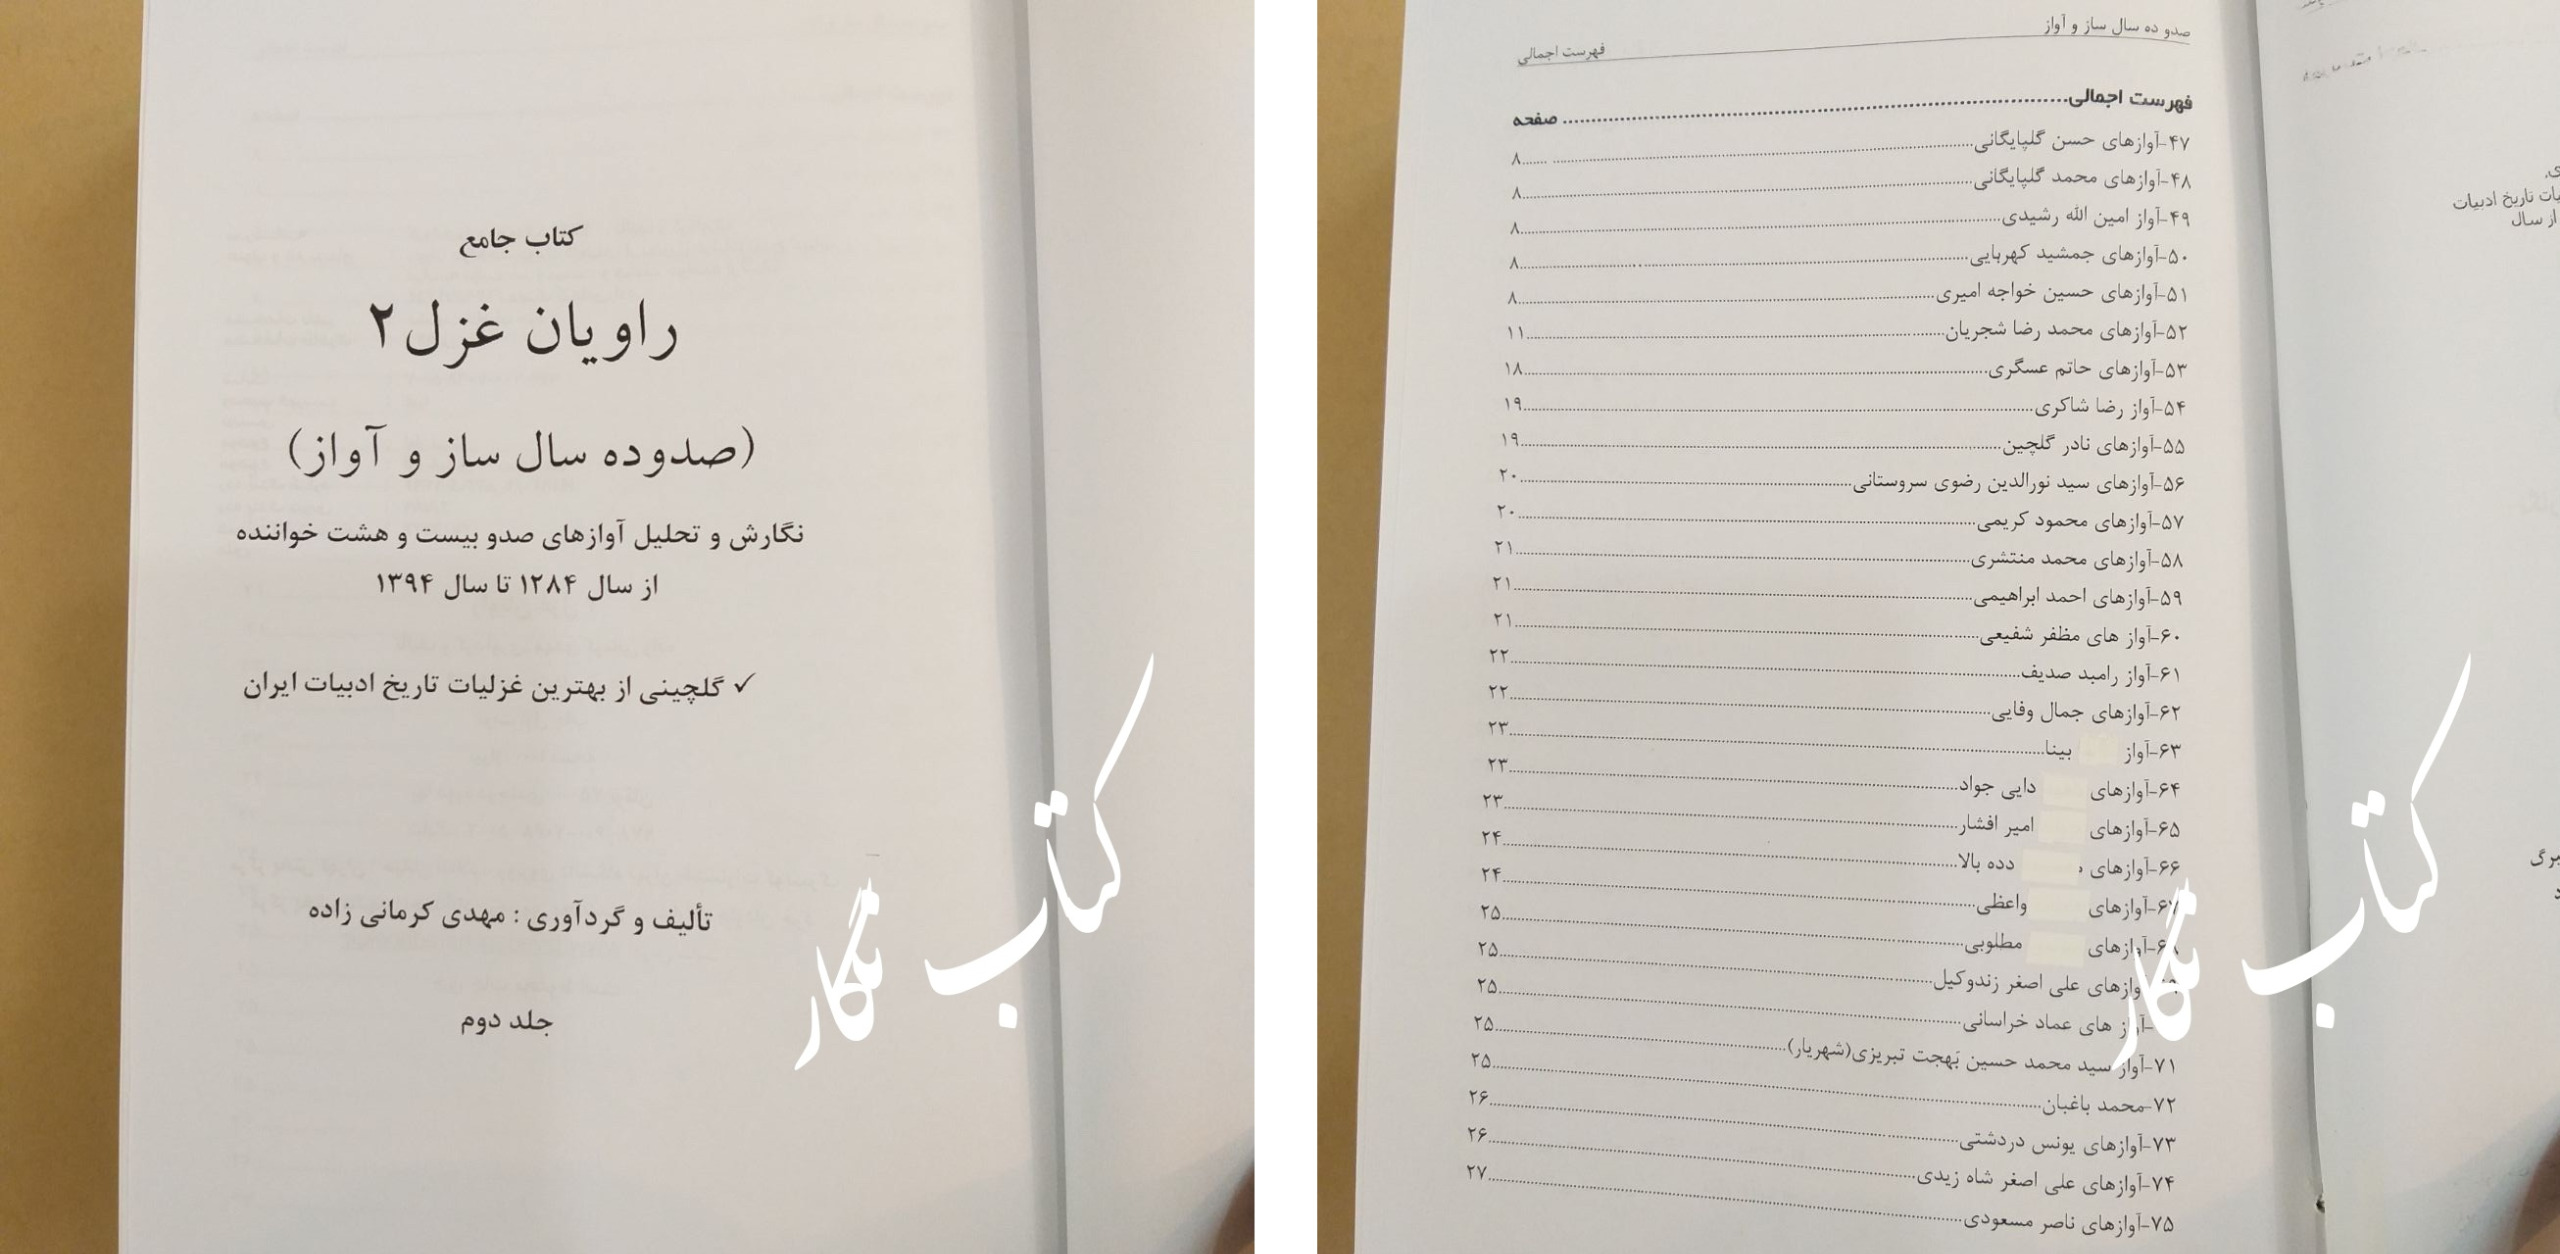 کتاب جامع
راویان غزل ۲
(صدوده سال ساز و آواز)
نگارش و تحلیل آوازهای صدو بیست و هشت خواننده
از سال ۱۲۸۴ تا سال ۱۳۹۴
✓ گلچینی از بهترین غزلیات تاریخ ادبیات ایران
تألیف و گردآوری : مهدی کرمانی زاده
جلد دوم
کتاب نگار
صدو ده سال ساز و آواز
فهرست اجمالی
فهرست اجمالی.......... صفحه
۴۷-آوازهای حسن گلپایگانی..........۸
۴۸-آوازهای محمد گلپایگانی..........۸
۴۹-آواز امین الله رشیدی..........۸
۵۰-آوازهای جمشید کهربایی..........۸
۵۱-آوازهای حسین خواجه امیری..........۸
۵۲-آوازهای محمد رضا شجریان..........۱۱
۵۳-آوازهای حاتم عسگری..........۱۸
۵۴-آواز رضا شاکری..........۱۹
۵۵-آوازهای نادر گلچین..........۱۹
۵۶-آوازهای سید نورالدین رضوی سروستانی..........۲۰
۵۷-آوازهای محمود کریمی..........۲۰
۵۸-آوازهای محمد منتشری..........۲۱
۵۹-آوازهای احمد ابراهیمی..........۲۱
۶۰-آواز های مظفر شفیعی..........۲۱
۶۱-آواز رامبد صدیف..........۲۲
۶۲-آوازهای جمال وفایی..........۲۲
۶۳-آواز بینا..........۲۳
۶۴-آوازهای دایی جواد..........۲۳
۶۵-آوازهای امیر افشار..........۲۳
۶۶-آوازهای دده بالا..........۲۴
۶۷-آوازهای واعظی..........۲۴
۶۸-آوازهای مطلوبی..........۲۵
آوازهای علی اصغر زندوکیل..........۲۵
آواز های عماد خراسانی..........۲۵
۷۱-آواز سید محمد حسین بَهجت تبریزی(شهریار)..........۲۵
۷۲-محمد باغبان..........۲۵
۷۳-آوازهای یونس دردشتی..........۲۶
۷۴-آوازهای علی اصغر شاه زیدی..........۲۶
۷۵-آوازهای ناصر مسعودی..........۲۷
تاریخ ادبیات
از سال
کتاب نگار